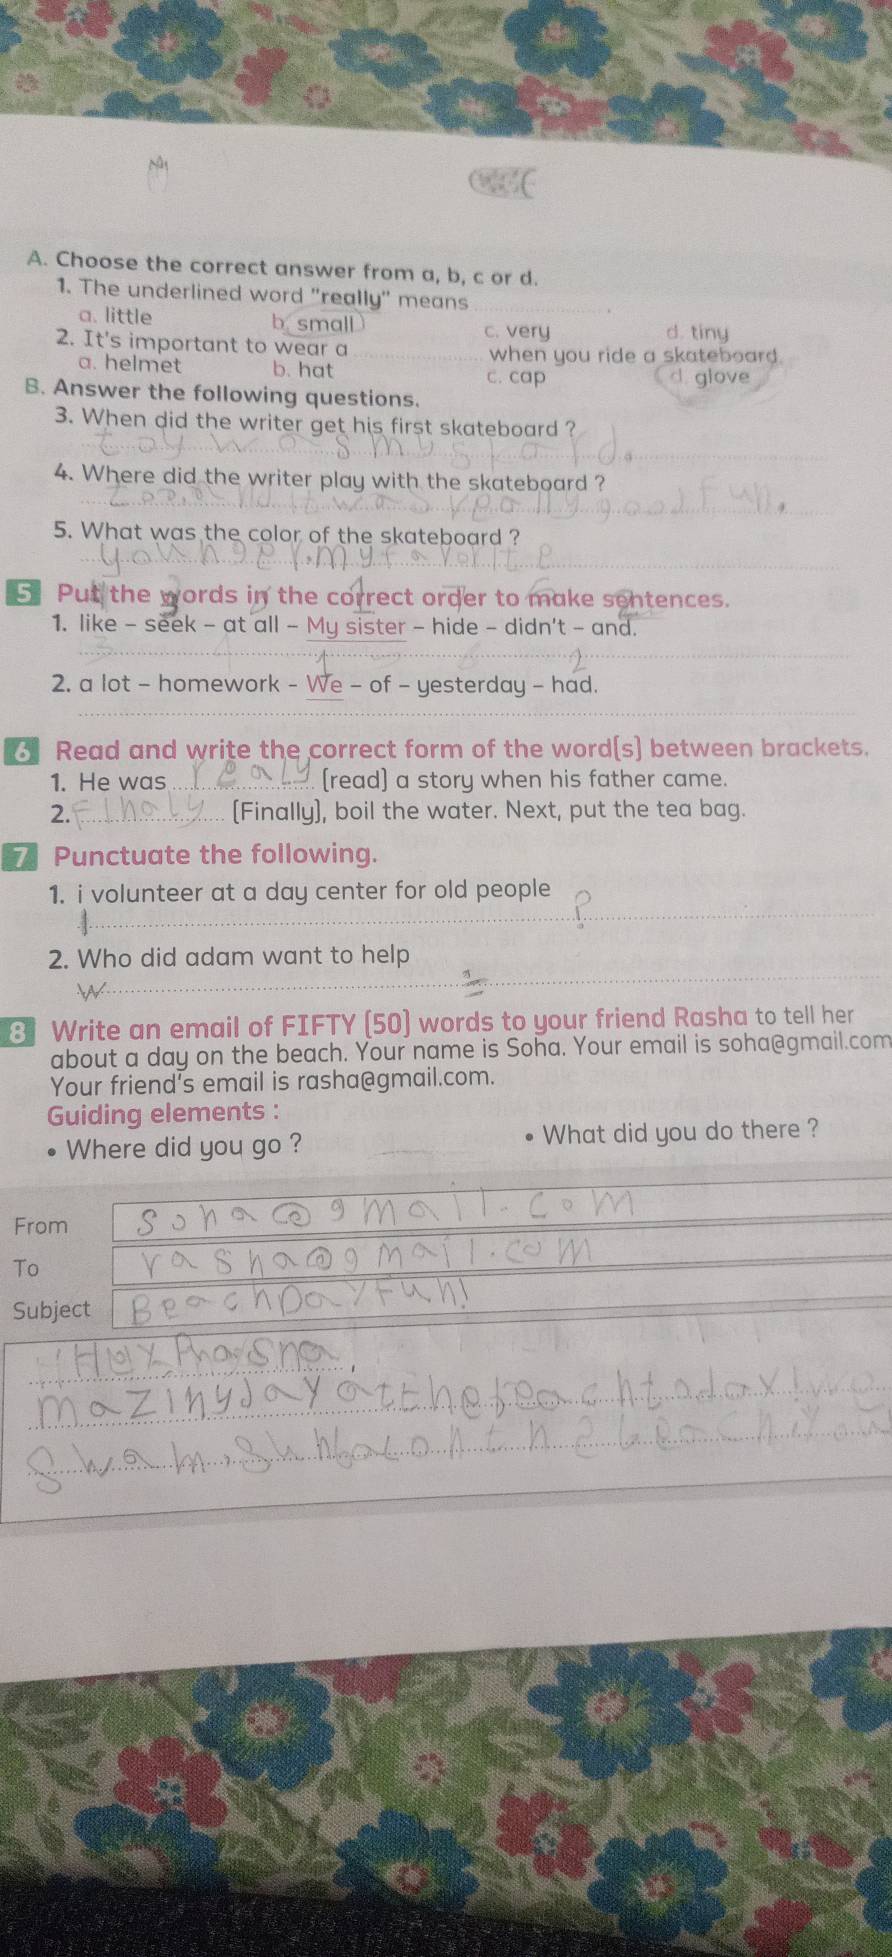 A. Choose the correct answer from a, b, c or d.
1. The underlined word "really" means ............ .
a. little b. small c. very d. tiny
2. It's important to wear a ............ when you ride a skateboard.
a. helmet b. hat c. cap d. glove
B. Answer the following questions.
3. When did the writer get his first skateboard ?
4. Where did the writer play with the skateboard ?
it was really good fun.
5. What was the color of the skateboard ?
younger.my favorite
5 Put the words in the correct order to make sentences.
1. like - seek - at all - My sister - hide - didn't - and.
2. a lot - homework - We - of - yesterday - had.
6 Read and write the correct form of the word(s) between brackets.
1. He was realy (read) a story when his father came.
2. Finaly (Finally), boil the water. Next, put the tea bag.
7 Punctuate the following.
1. i volunteer at a day center for old people
I ?
2. Who did adam want to help
W
8 Write an email of FIFTY (50) words to your friend Rasha to tell her
about a day on the beach. Your name is Soha. Your email is soha@gmail.com
Your friend's email is rasha@gmail.com.
Guiding elements :
• Where did you go ? • What did you do there ?
From soha@gmail.com
To rasha@gmail.com
Subject BeachDayFun!
mazingdayatthebeachtoday!we
swam,